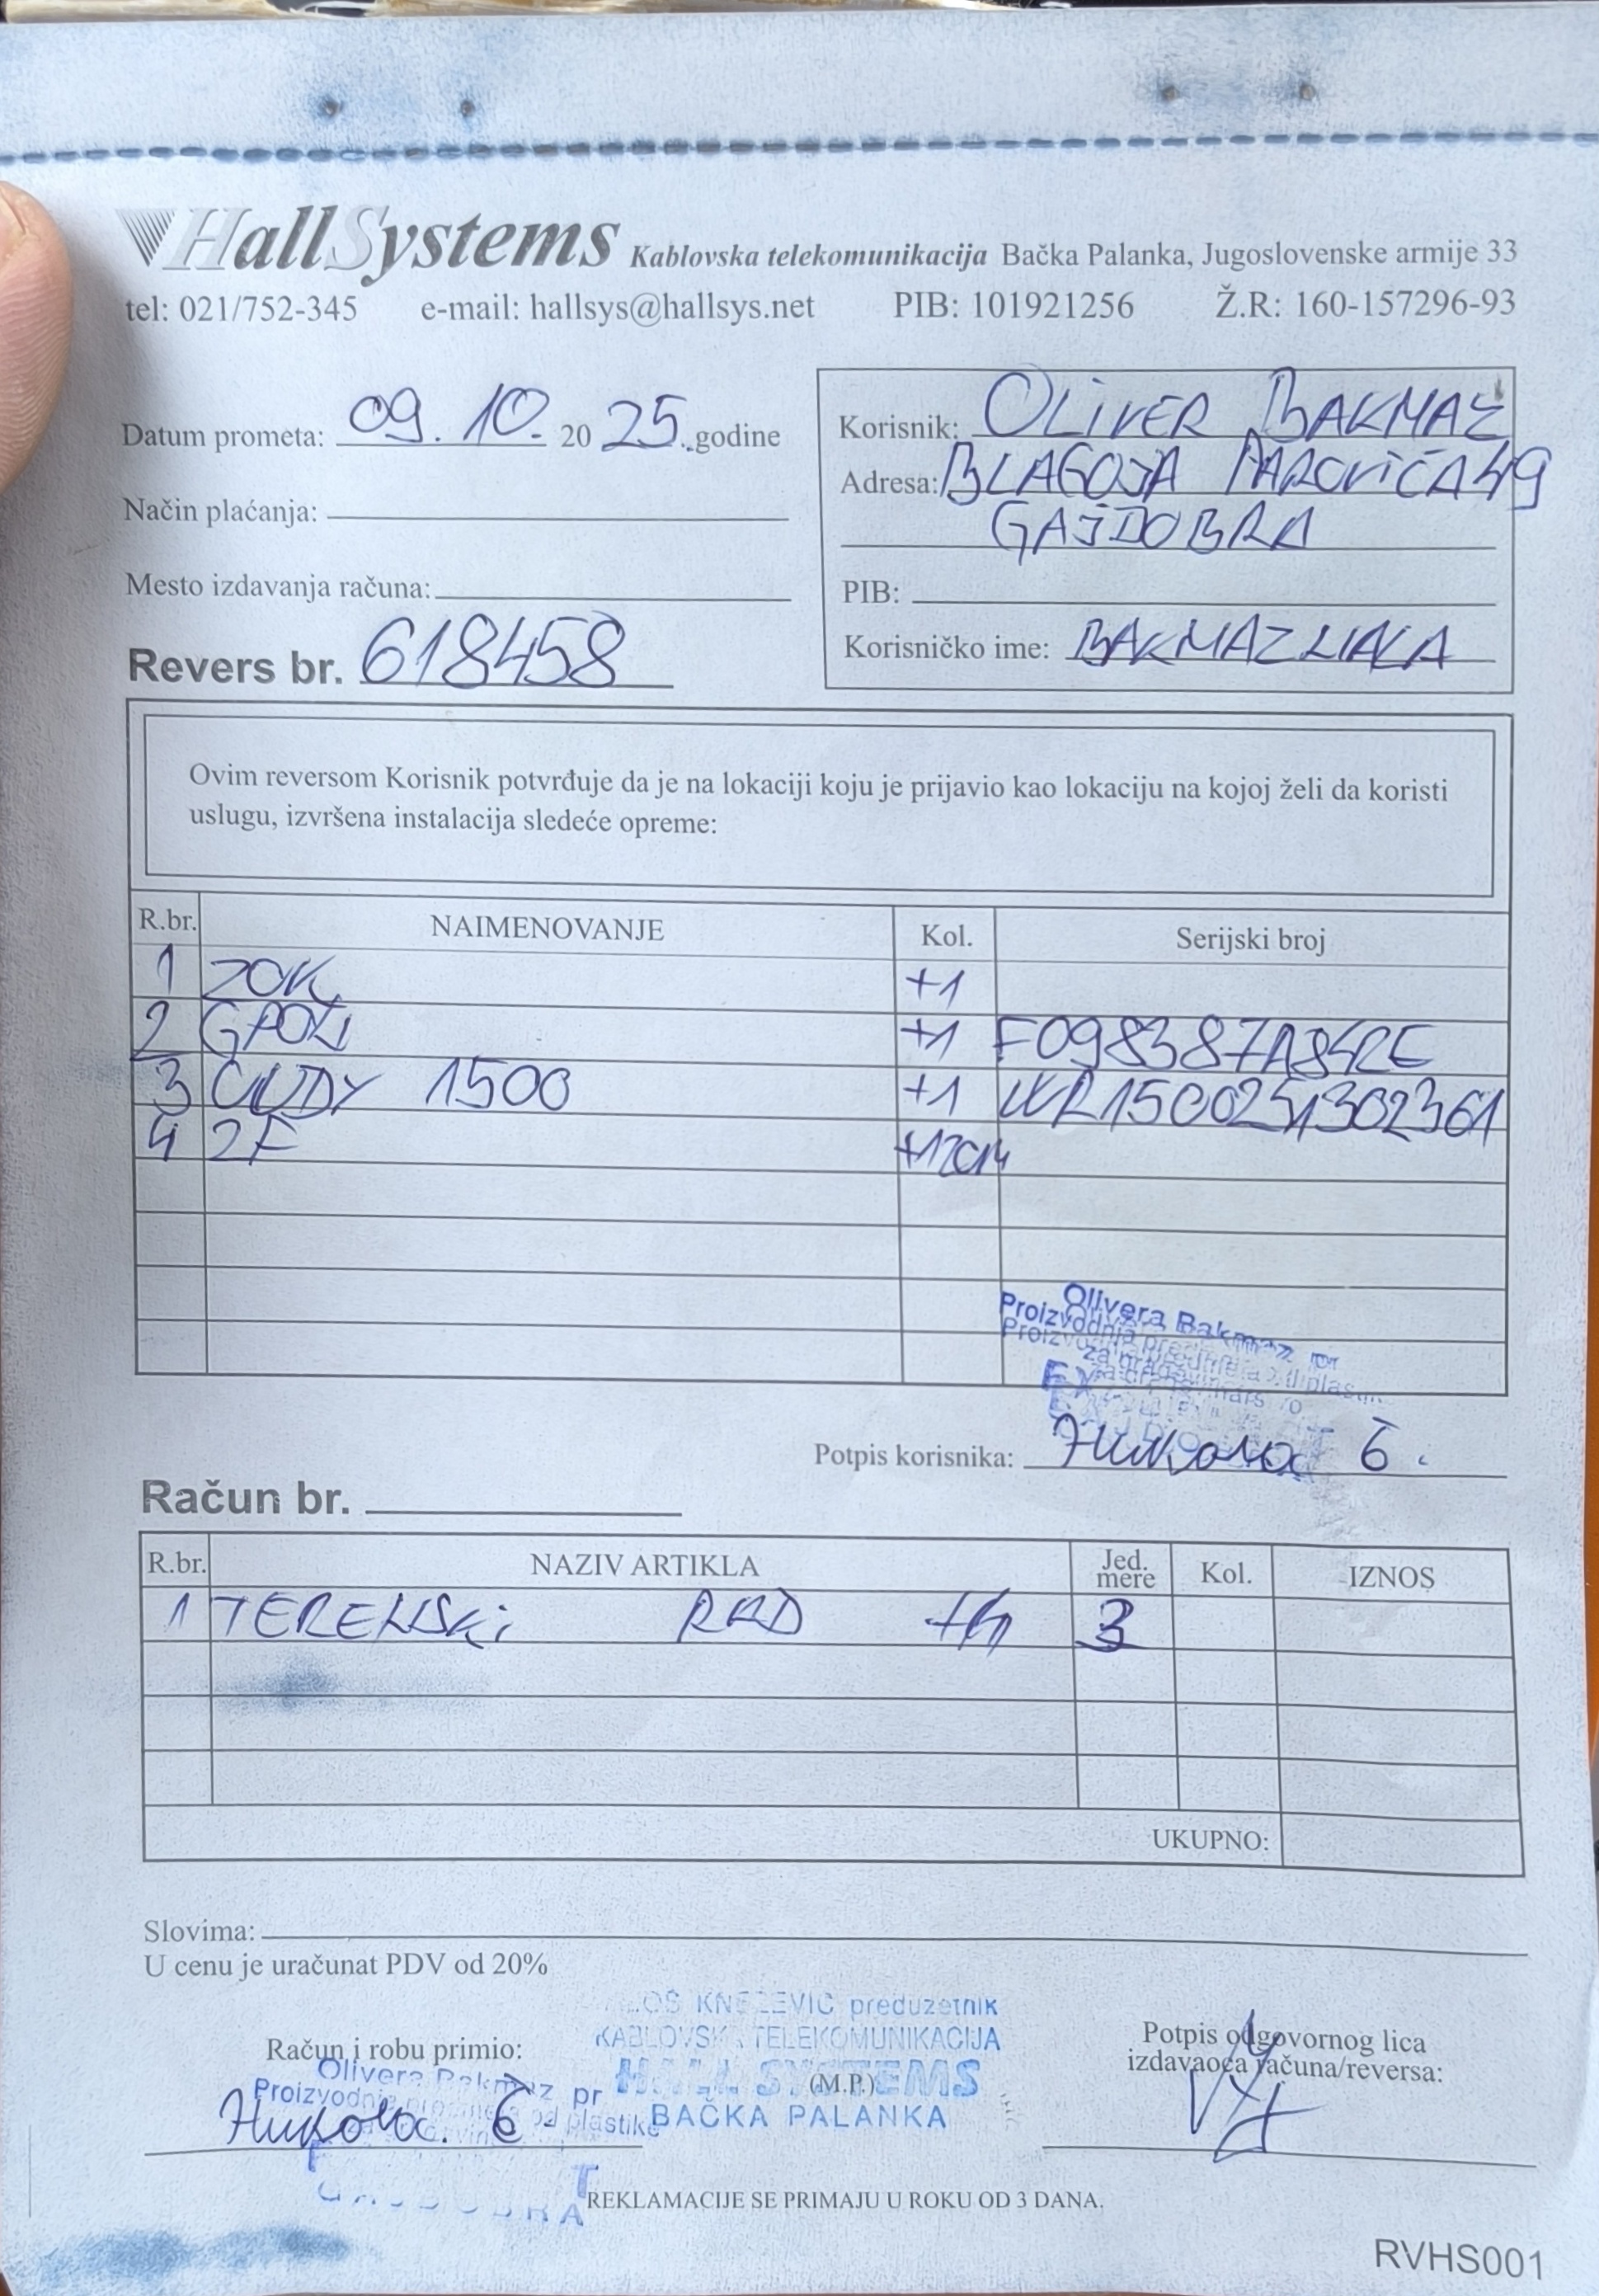 HallSystems Kablovska telekomunikacija Bačka Palanka, Jugoslovenske armije 33
tel: 021/752-345 e-mail: hallsys@hallsys.net PIB: 101921256 Ž.R: 160-157296-93
Datum prometa: 09.10. 20 25. godine
Način plaćanja:
Mesto izdavanja računa:
Revers br. 618458
Korisnik: OLIVER BAKMAZ
Adresa: BLAGOJA PAROVIĆA 49
GAJDOBRA
PIB:
Korisničko ime: BAKMAZ
Ovim reversom Korisnik potvrđuje da je na lokaciji koju je prijavio kao lokaciju na kojoj želi da koristi
uslugu, izvršena instalacija sledeće opreme:
R.br. NAIMENOVANJE Kol. Serijski broj
1 ZOK +1
2 GPON +1 F098387A842E
3 CUDY 1500 +1 WR1500251302361
4 2F
Olivera Bakmaz pr
Potpis korisnika: Никола Б.
Račun br.
R.br. NAZIV ARTIKLA Jed. mere Kol. IZNOS
1 TERENSKI RAD 3
UKUPNO:
Slovima:
U cenu je uračunat PDV od 20%
KNEŽEVIĆ preduzetnik
KABLOVSKA TELEKOMUNIKACIJA
HALL SYSTEMS
(M.P.)
BAČKA PALANKA
Račun i robu primio:
Olivera Bakmaz pr
Proizvodnja predmeta od plastike
Никола Б
GAJDOBRA
Potpis odgovornog lica
izdavaoca računa/reversa:
REKLAMACIJE SE PRIMAJU U ROKU OD 3 DANA.
RVHS001